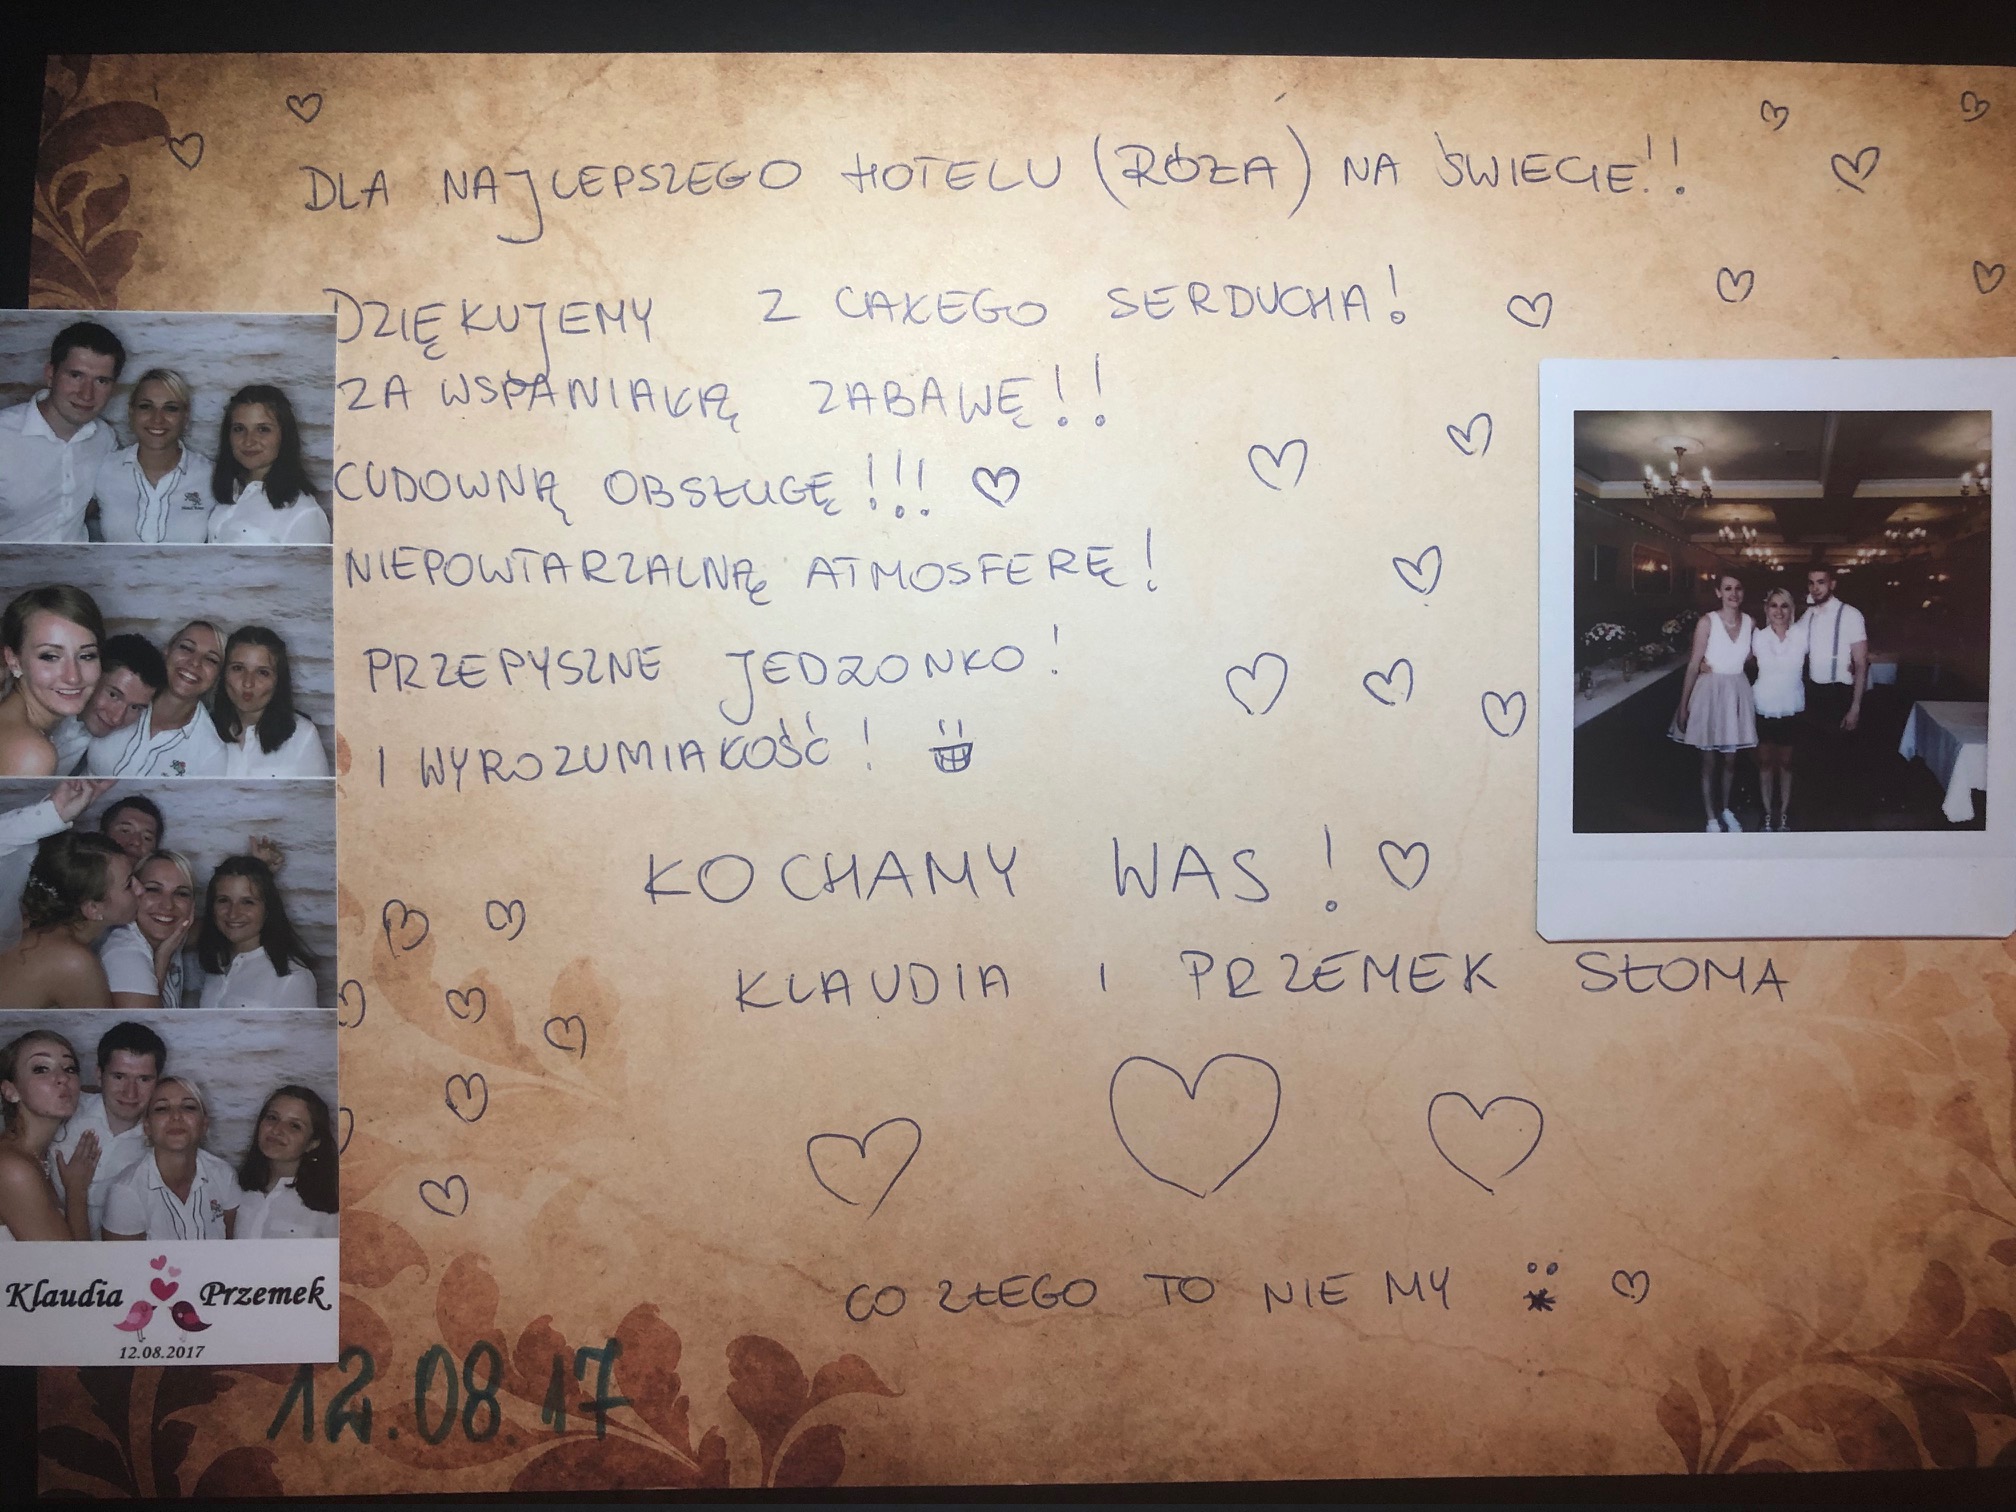 DLA NAJLEPSZEGO HOTELU (RÓŻA) NA ŚWIECIE!!
DZIĘKUJEMY Z CAŁEGO SERDUCHA!
ZA WSPANIAŁĄ ZABAWĘ!!
CUDOWNĄ OBSŁUGĘ!!! ♡
NIEPOWTARZALNĄ ATMOSFERĘ!
PRZEPYSZNE JEDZONKO!
I WYROZUMIAŁOŚĆ!
KOCHAMY WAS! ♡
KLAUDIA I PRZEMEK SŁOMA
CO ZŁEGO TO NIE MY :* ♡
Klaudia Przemek
12.08.2017
12.08.17